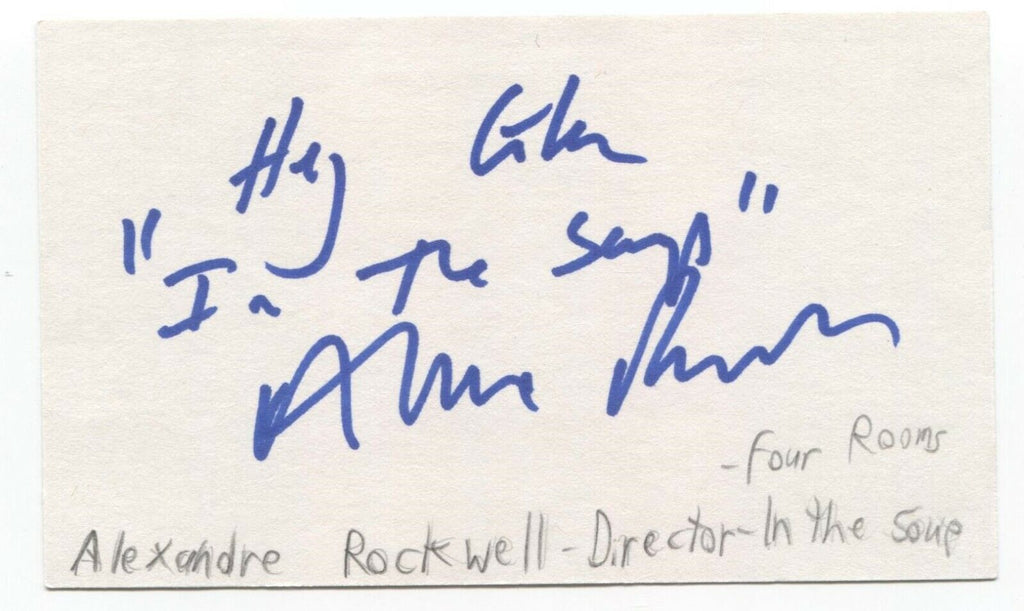 Hey
"In The Soup"
-Four Rooms
Alexandre Rockwell-Director-In the Soup